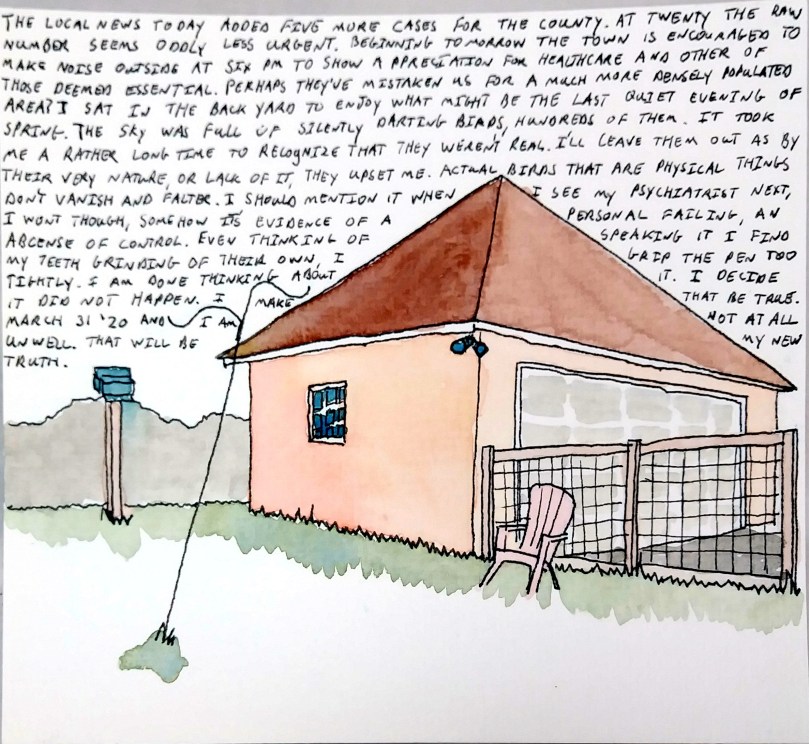 THE LOCAL NEWS TODAY ADDED FIVE MORE CASES FOR THE COUNTY. AT TWENTY THE RAW
NUMBER SEEMS ODDLY LESS URGENT. BEGINNING TOMORROW THE TOWN IS ENCOURAGED TO
MAKE NOISE OUTSIDE AT SIX PM TO SHOW A APPRECIATION FOR HEALTHCARE AND OTHER OF
THOSE DEEMED ESSENTIAL. PERHAPS THEY'VE MISTAKEN US FOR A MUCH MORE DENSELY POPULATED
AREA? I SAT IN THE BACK YARD TO ENJOY WHAT MIGHT BE THE LAST QUIET EVENING OF
SPRING. THE SKY WAS FULL OF SILENTLY DARTING BIRDS, HUNDREDS OF THEM. IT TOOK
ME A RATHER LONG TIME TO RECOGNIZE THAT THEY WEREN'T REAL. I'LL LEAVE THEM OUT AS BY
THEIR VERY NATURE, OR LACK OF IT, THEY UPSET ME. ACTUAL BIRDS THAT ARE PHYSICAL THINGS
DON'T VANISH AND FALTER. I SHOULD MENTION IT WHEN I SEE MY PSYCHIATRIST NEXT,
I WONT THOUGH, SOMEHOW ITS EVIDENCE OF A PERSONAL FAILING, AN
ABSENSE OF CONTROL. EVEN THINKING OF SPEAKING IT I FIND
MY TEETH GRINDING OF THEIR OWN, I GRIP THE PEN TOO
TIGHTLY. I AM DONE THINKING ABOUT IT. I DECIDE
IT DID NOT HAPPEN. I MAKE THAT BE TRUE.
MARCH 31 '20 AND I AM NOT AT ALL
UNWELL. THAT WILL BE MY NEW
TRUTH.